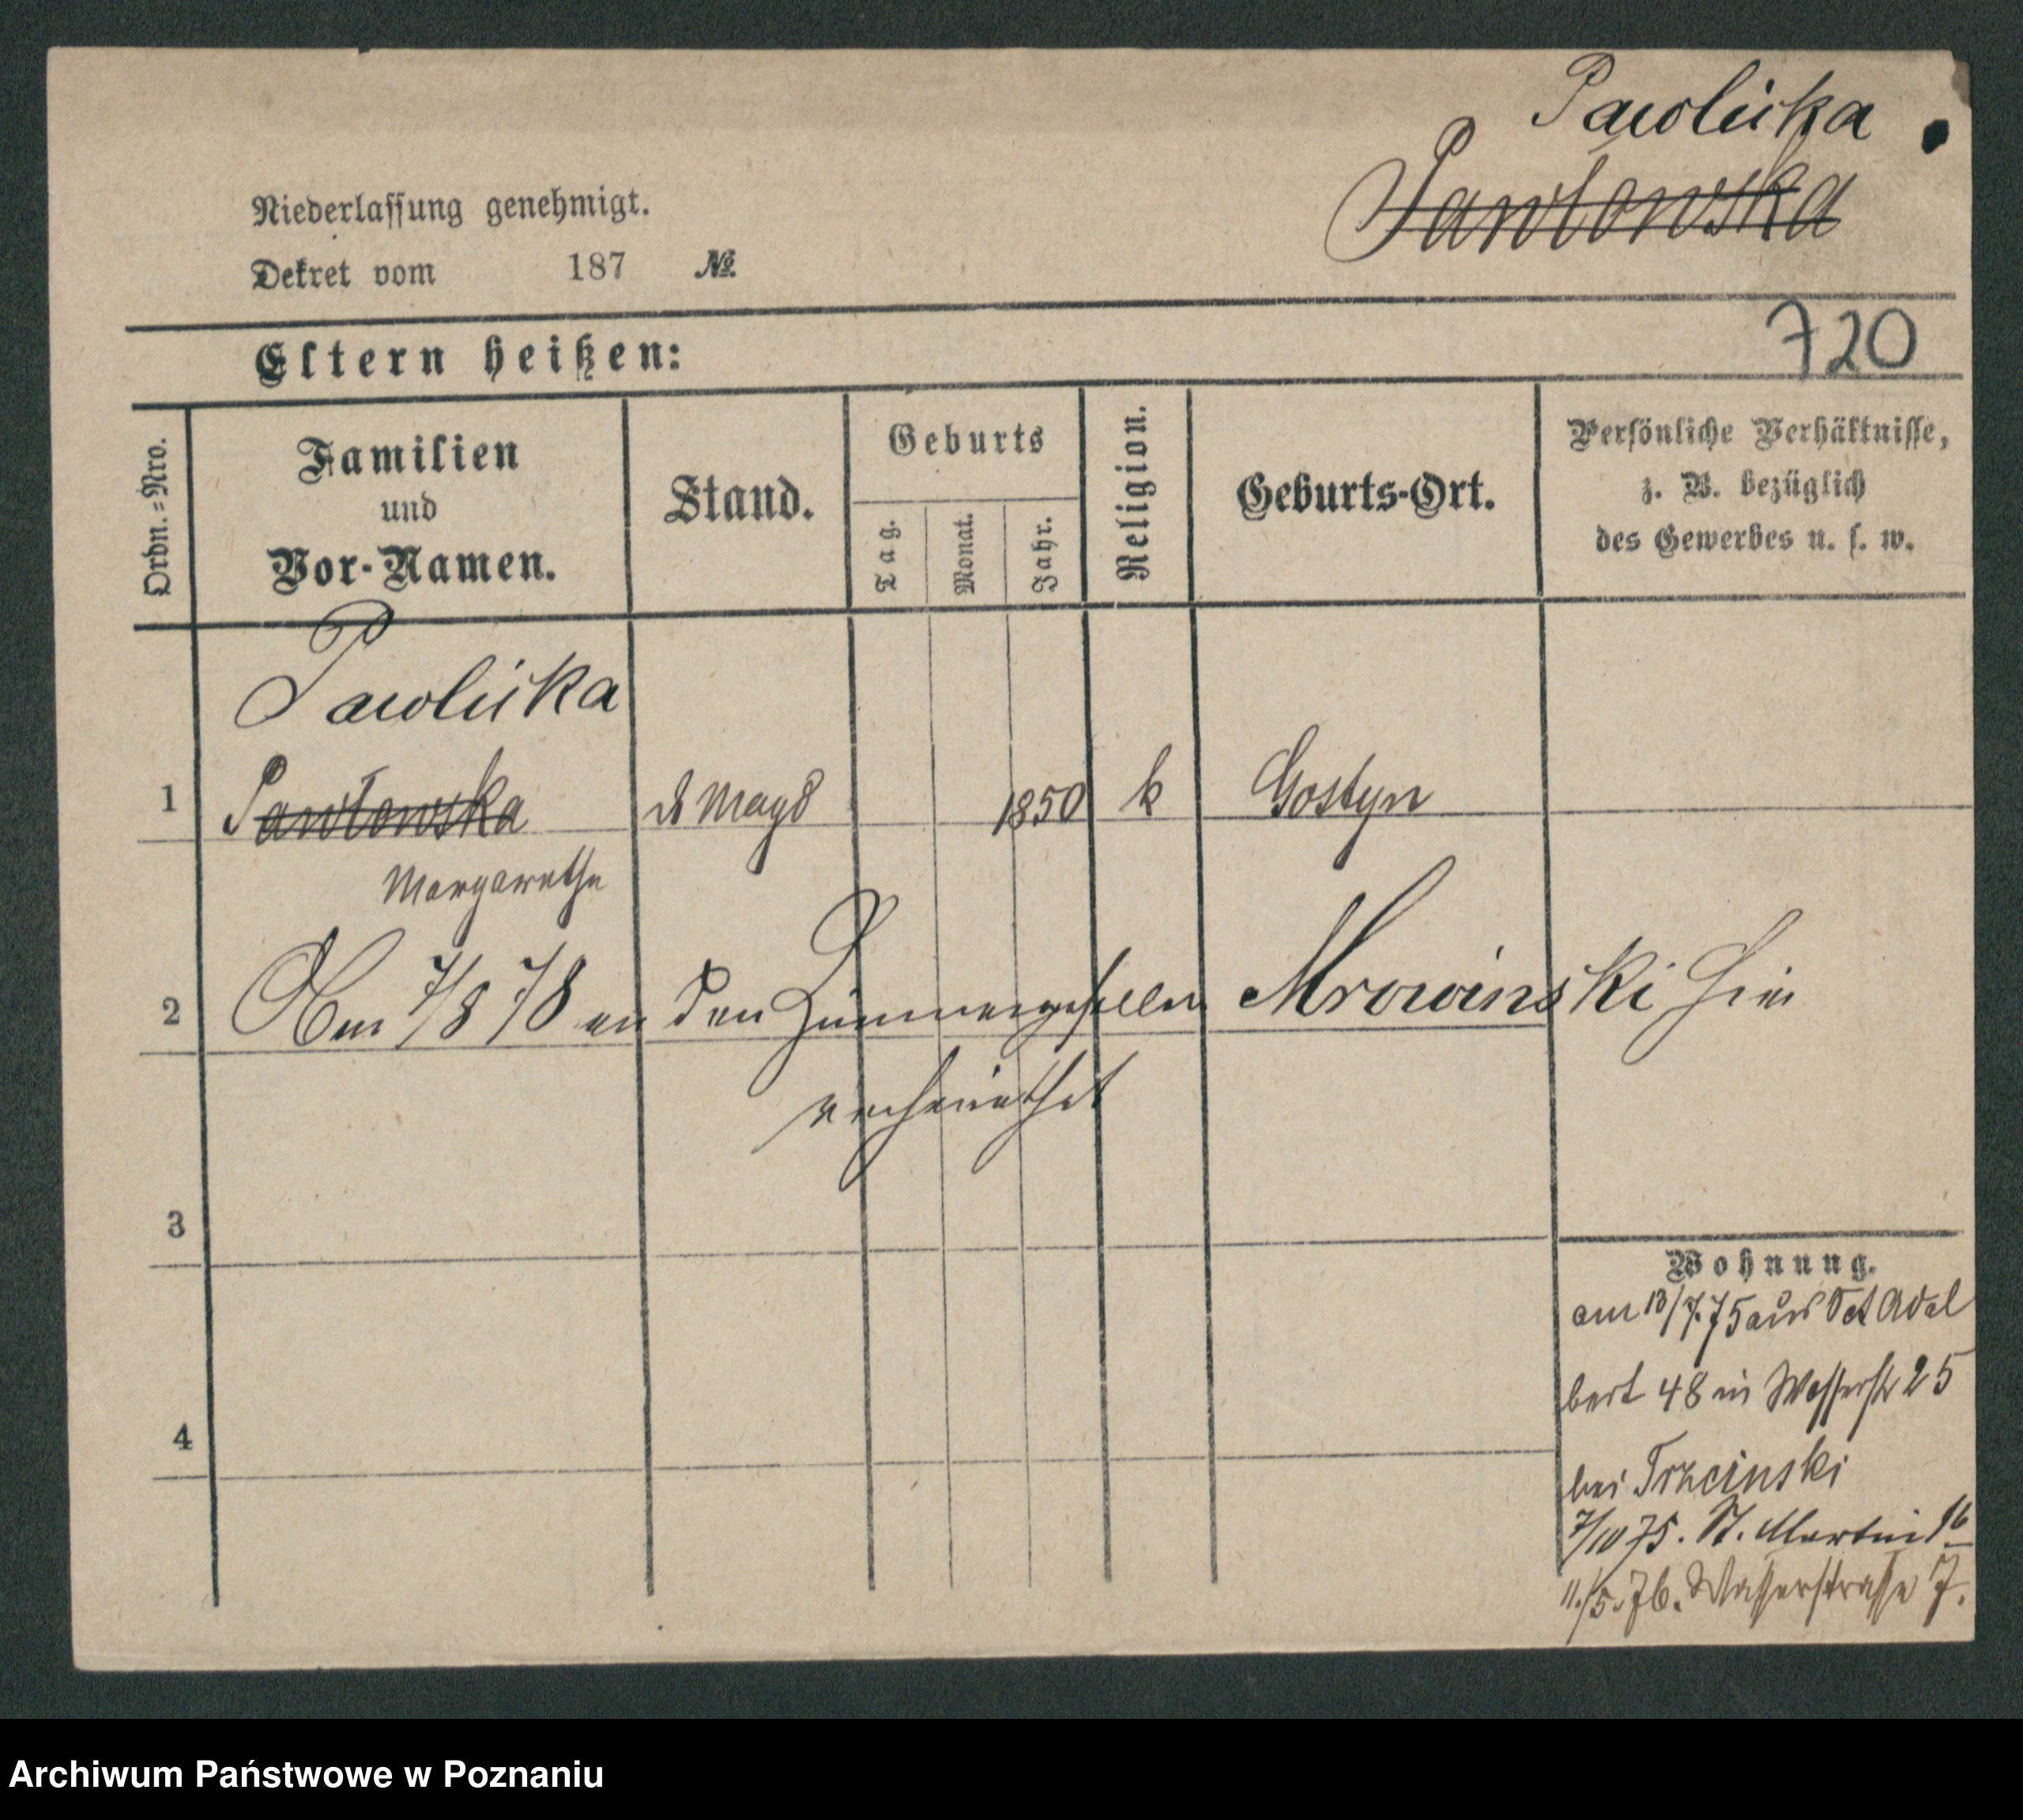 Pawlicka
Pawłowska
Niederlassung genehmigt.
Dekret vom 187 №
720
Eltern heißen:
Ordn.-Nro.
Familien
und
Vor-Namen.
Stand.
Geburts
Tag.
Monat.
Jahr.
Religion.
Geburts-Ort.
Persönliche Verhältnisse,
z. B. bezüglich
des Gewerbes u. s. w.
Pawlicka
1 Pawłowska Magd 1850 k Gostyn
Margarethe
2 Am 7/8 78 an den Zimmergesellen Mrowinski hier
verheirathet
3
Wohnung.
am 13/7.75 aus Adal
bert 48 in Wasserstr 25
4
bei Trzcinski
7/10 75. St. Martin 16
11./5.76. Wasserstrasse 7.
Archiwum Państwowe w Poznaniu